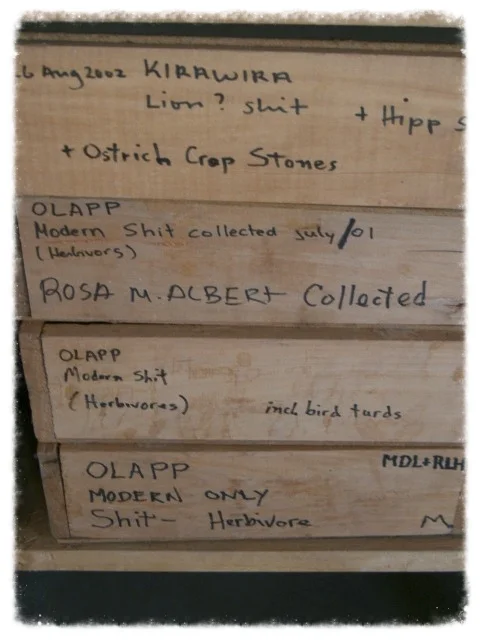 6 Aug 2002 KIRAWIRA
Lion? shit + Hipp s
+ Ostrich Crop Stones
OLAPP
Modern Shit collected July/01
(Herbivors)
ROSA M. ALBERT Collected
OLAPP
Modern Shit
(Herbivores) incl bird turds
OLAPP MDL+RLH
MODERN ONLY
Shit- Herbivore M